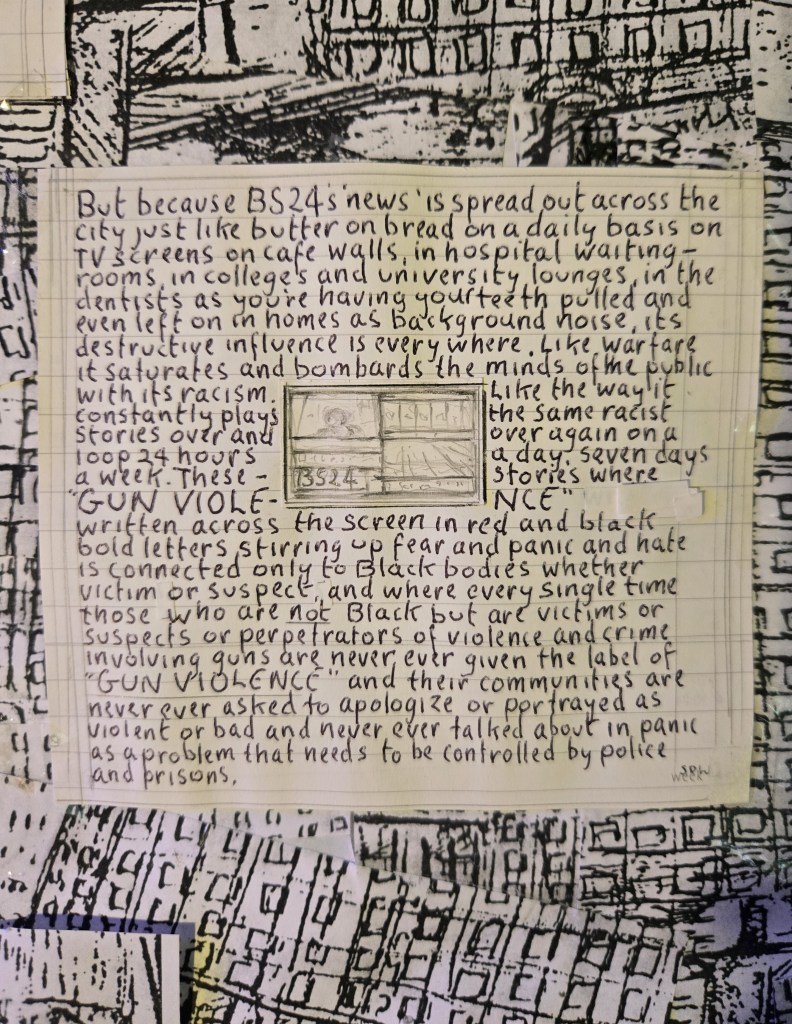 But because BS24's 'news' is spread out across the
city just like butter on bread on a daily basis on
TV screens on cafe walls, in hospital waiting-
rooms, in college's and university lounges, in the
dentists as you're having your teeth pulled and
even left on in homes as background noise, its
destructive influence is everywhere. Like warfare
it saturates and bombards the minds of the public
with its racism. Like the way it
constantly plays the same racist
stories over and over again on a
loop 24 hours a day, seven days
a week. These - stories where
"GUN VIOLE- NCE"
BS24
written across the screen in red and black
bold letters stirring up fear and panic and hate
is connected only to Black bodies whether
victim or suspect, and where every single time
those who are not Black but are victims or
suspects or perpetrators of violence and crime
involving guns are never, ever given the label of
"GUN VIOLENCE" and their communities are
never ever asked to apologize or portrayed as
violent or bad and never ever talked about in panic
as a problem that needs to be controlled by police
and prisons.